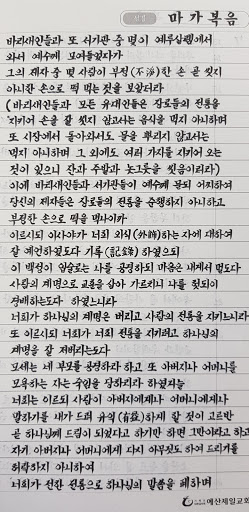 성경
마 가 복 음
바리새인들과 또 서기관 중 몇이 예루살렘에서
와서 예수께 모여들었다가
그의 제자 중 몇 사람이 부정(不淨)한 손 곧 씻지
아니한 손으로 떡 먹는 것을 보았더라
(바리새인들과 모든 유대인들은 장로들의 전통을
지키어 손을 잘 씻지 않고서는 음식을 먹지 아니하며
또 시장에서 돌아와서도 물을 뿌리지 않고서는
먹지 아니하며 그 외에도 여러 가지를 지키어 오는
것이 있으니 잔과 주발과 놋그릇을 씻음이러라)
이에 바리새인들과 서기관들이 예수께 묻되 어찌하여
당신의 제자들은 장로들의 전통을 준행하지 아니하고
부정한 손으로 떡을 먹나이까
이르시되 이사야가 너희 외식(外飾)하는 자에 대하여
잘 예언하였도다 기록(記錄)하였으되
이 백성이 입술로는 나를 공경하되 마음은 내게서 멀도다
사람의 계명으로 교훈을 삼아 가르치니 나를 헛되이
경배하는도다 하였느니라
너희가 하나님의 계명은 버리고 사람의 전통을 지키느니라
또 이르시되 너희가 너희 전통을 지키려고 하나님의
계명을 잘 저버리는도다
모세는 네 부모를 공경하라 하고 또 아버지나 어머니를
모욕하는 자는 죽임을 당하리라 하였거늘
너희는 이르되 사람이 아버지에게나 어머니에게나
말하기를 내가 드려 유익(有益)하게 할 것이 고르반
곧 하나님께 드림이 되었다고 하기만 하면 그만이라 하고
자기 아버지나 어머니에게 다시 아무것도 하여 드리기를
허락하지 아니하여
너희가 전한 전통으로 하나님의 말씀을 폐하며
예산제일교회